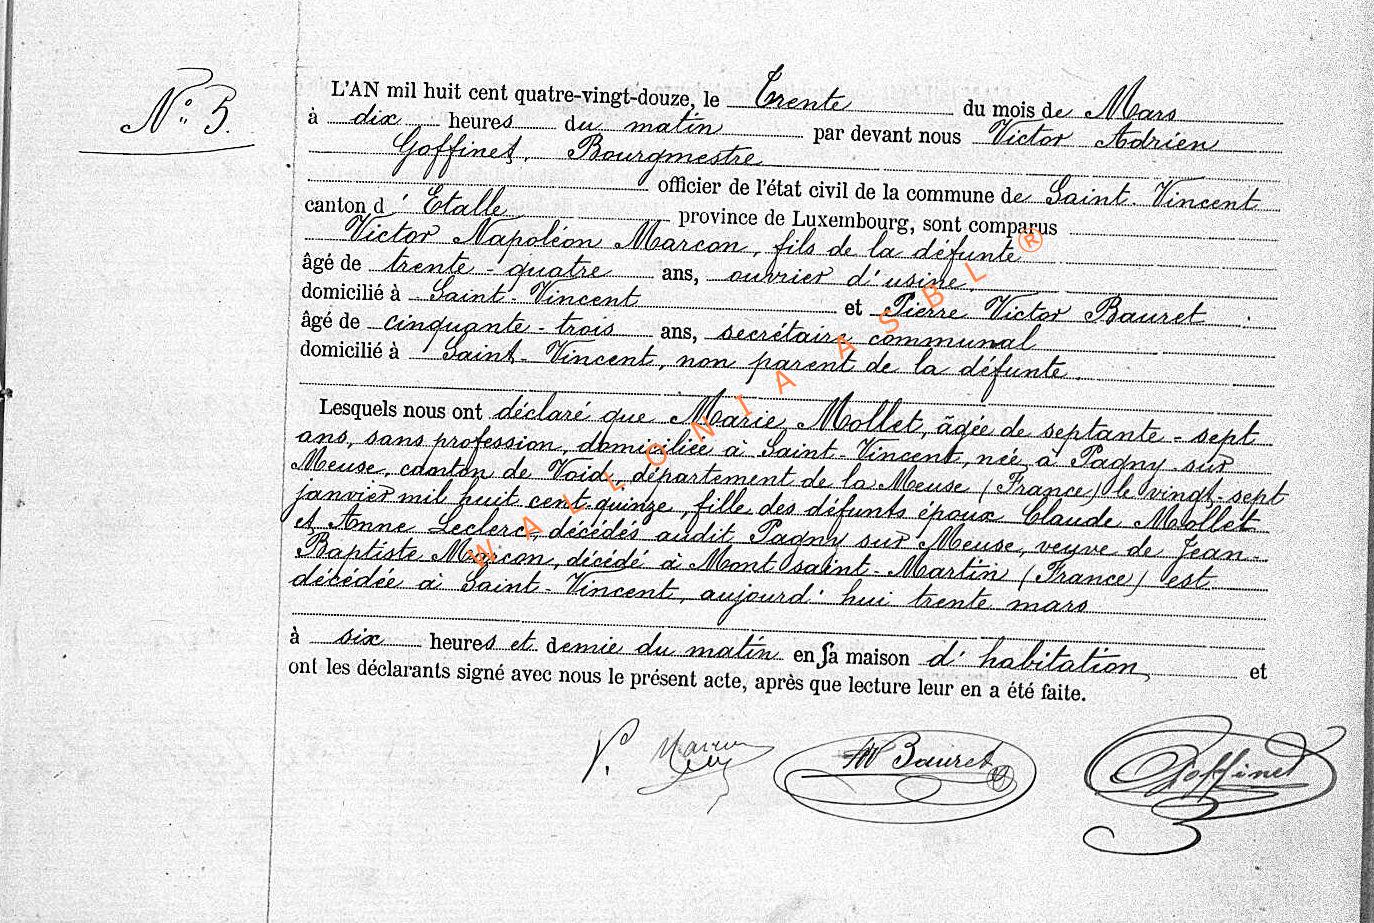 N° 5.
L'AN mil huit cent quatre-vingt-douze, le Trente du mois de Mars
à dix heures du matin par devant nous Victor Adrien
Goffinet, Bourgmestre
officier de l'état civil de la commune de Saint-Vincent
canton d'Etalle province de Luxembourg, sont comparus
Victor Napoléon Marcon, fils de la défunte
âgé de trente-quatre ans, ouvrier d'usine
domicilié à Saint-Vincent et Pierre Victor Bauret
âgé de cinquante-trois ans, secrétaire communal
domicilié à Saint-Vincent, non parent de la défunte.
Lesquels nous ont déclaré que Marie Mollet, âgée de septante-sept
ans, sans profession, domiciliée à Saint-Vincent, née à Pagny sur
Meuse, canton de Void, département de la Meuse (France) le vingt-sept
janvier mil huit cent quinze, fille des défunts époux Claude Mollet
et Anne Leclerc, décédés audit Pagny sur Meuse, veuve de Jean-
Baptiste Marcon, décédé à Mont saint-Martin (France) est
décédée à Saint-Vincent, aujourd'hui trente mars
à six heures et demie du matin en sa maison d'habitation, et
ont les déclarants signé avec nous le présent acte, après que lecture leur en a été faite.
V. Marcon Bauret Goffinet
WALLONIA ASBL ®